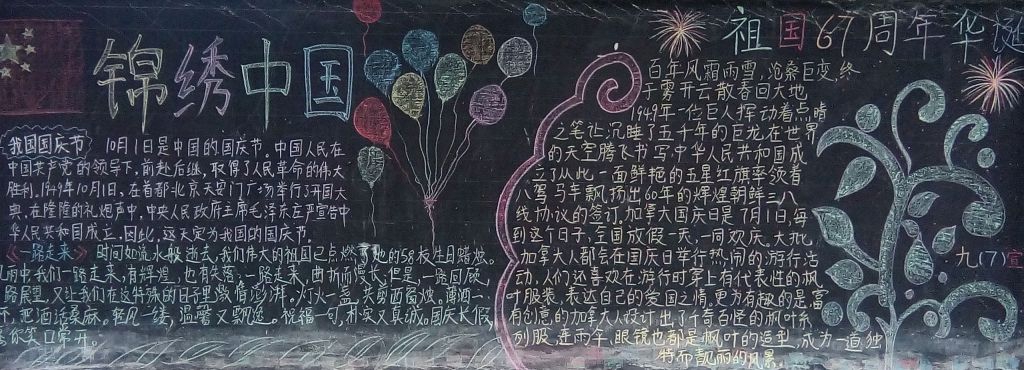 锦绣中国
我国国庆节
10月1日是中国的国庆节。中国人民在
中国共产党的领导下，前赴后继，取得了人民革命的伟大
胜利。1949年10月1日，在首都北京天安门广场举行了开国大
典，在隆隆的礼炮声中，中央人民政府主席毛泽东庄严宣告中
华人民共和国成立。因此，这天定为我国的国庆节。
《一路走来》
时间如流水般逝去，我们伟大的祖国已点燃了她的58枝生日蜡烛。
雨中我们一路走来，有辉煌，也有失落；一路走来，曲折而漫长。但是，一路回顾，
路展望，又让我们在这特殊的日子里激情澎湃。灯火一盏，共剪西窗烛。薄酒一
，把酒话桑麻。轻风一缕，温馨又飘逸。祝福一句，朴实又真诚。国庆长假，
你笑口常开。
祖国67周年华诞
百年风霜雨雪，沧桑巨变，终
于雾开云散春回大地
1949年一位巨人挥动着点睛
之笔让沉睡了五千年的巨龙在世界
的天空腾飞书写中华人民共和国成
立了从此一面鲜艳的五星红旗率领着
八驾马车飘扬出60年的辉煌朝鲜三八
线协议的签订，加拿大国庆日是7月1日，每
到这个日子，全国放假一天，一同欢庆。大批
加拿大人都会在国庆日举行热闹的游行活
动，人们还喜欢在游行时穿上有代表性的枫
叶服装，表达自己的爱国之情。更为有趣的是，富
有创意的加拿大人设计出了千奇百怪的枫叶系
列服，连雨伞、眼镜也都是枫叶的造型，成为一道独
特而靓丽的风景。
九(7)宣